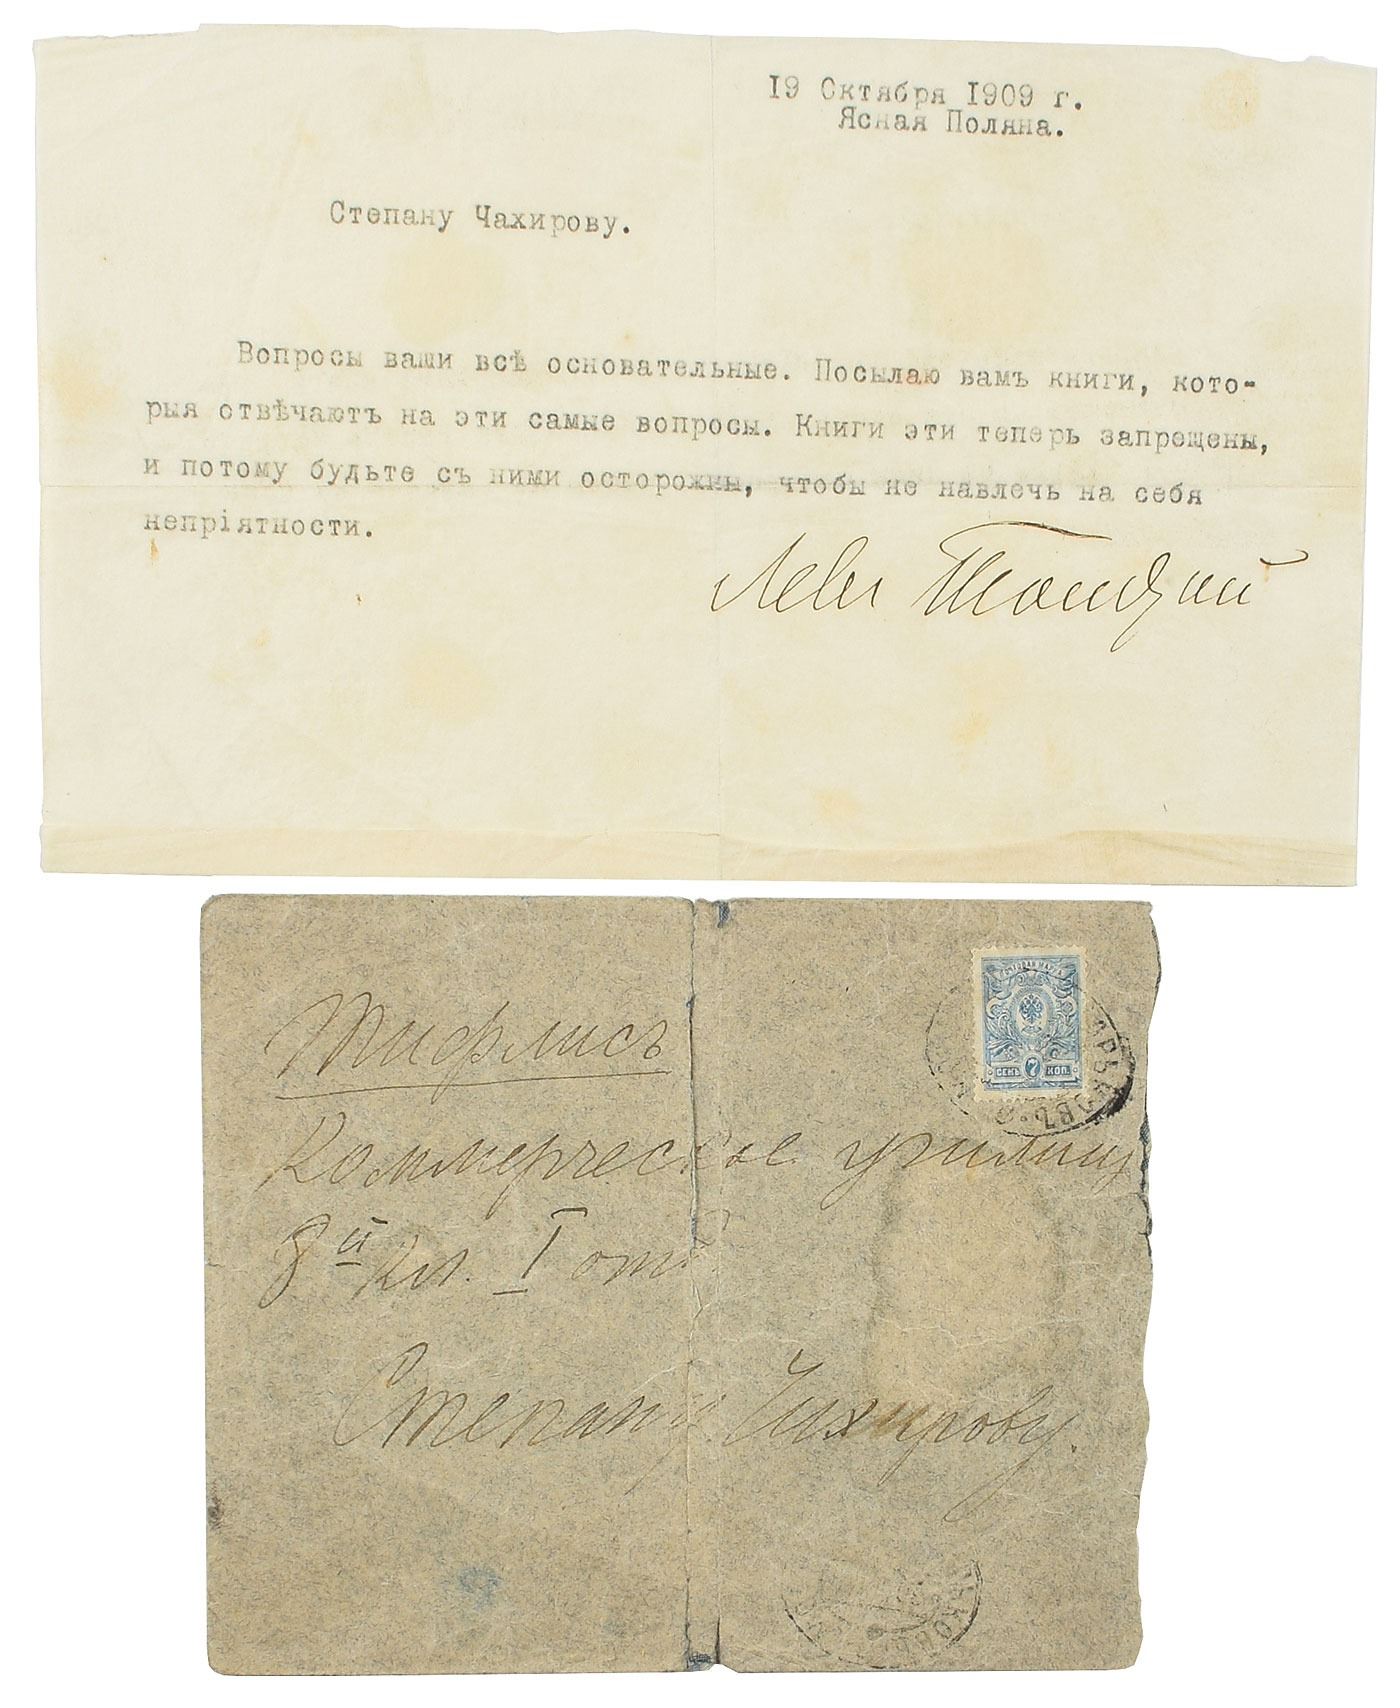 19 Октября 1909 г.
Ясная Поляна.
Степану Чахирову.
Вопросы ваши всѣ основательные. Посылаю вамъ книги, кото-
рыя отвѣчаютъ на эти самые вопросы. Книги эти теперь запрещены,
и потому будьте съ ними осторожны, чтобы не навлечь на себя
непріятности.
Левъ Толстой
ПОЧТОВАЯ МАРКА
СЕМЬ 7 КОП.
Тифлисъ
Коммерческое училищ
8й кл. I отд
Степану Чахирову.